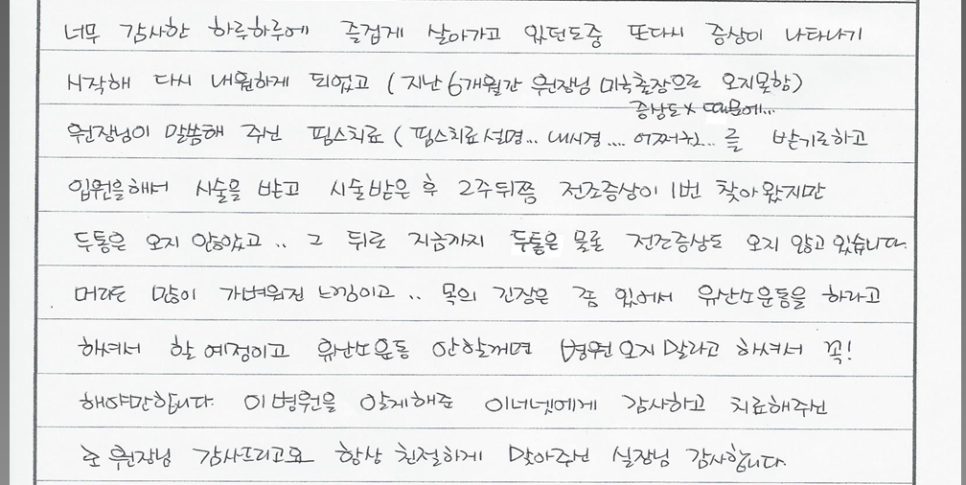 너무 감사한 하루하루에 즐겁게 살아가고 있던도중 또다시 증상이 나타나기
시작해 다시 내원하게 되었고 (지난 6개월간 원장님 미국출장으로 오지못함)
증상도x 때문에...
원장님이 말씀해 주신 핌스치료 (핌스치료설명... 내시경.... 어쩌구)... 를 받기로하고
입원을해서 시술을 받고 시술받은 후 2주뒤쯤 전조증상이 1번 찾아왔지만
두통은 오지 않았고.. 그 뒤로 지금까지 두통은 물론 전조증상도 오지 않고 있습니다.
머리도 많이 가벼워진 느낌이고.. 목의 긴장은 좀 있어서 유산소운동을 하라고
하셔서 할 예정이고 유산소운동 안할꺼면 병원 오지 말라고 하셔서 꼭!
해야만합니다. 이병원을 알게해준 이너넷에게 감사하고 치료해주신
조 원장님 감사드리고요 항상 친절하게 맞아주신 실장님 감사합니다.